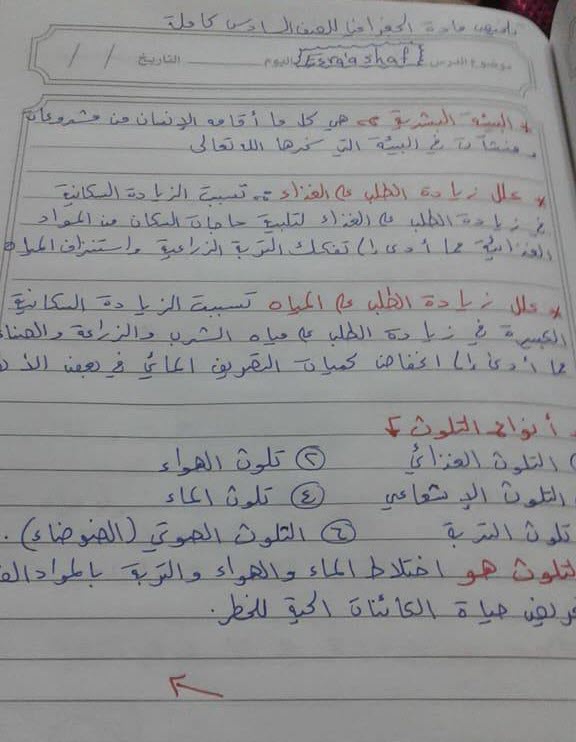 تلخيص مادة الجغرافيا للصف السادس كاملة
موضوع الدرس {Esra'a shaf} اليوم التاريخ / /
* البيئة البشرية :- هي كل ما أقامه الإنسان من مشروعات
ومنشآت في البيئة التي سخرها الله تعالى
* علل زيادة الطلب على الغذاء :- تسببت الزيادة السكانية
في زيادة الطلب على الغذاء لتلبية حاجات السكان من المواد
الغذائية مما أدى إلى تفكك التربة الزراعية واستنزاف المياه
* علل زيادة الطلب على المياه تسببت الزيادة السكانية
الكبيرة في زيادة الطلب على مياه الشرب والزراعة والصنا
مما أدى إلى انخفاض كميات التصريف المائي في بعض الأ
أنواع التلوث ↓
التلوث الغذائي ② تلوث الهواء
التلوث الإشعاعي ④ تلوث الماء
تلوث التربة ⑥ التلوث الصوتي (الضوضاء).
التلوث هو اختلاط الماء والهواء والتربة بالمواد
حياة الكائنات الحية للخطر.